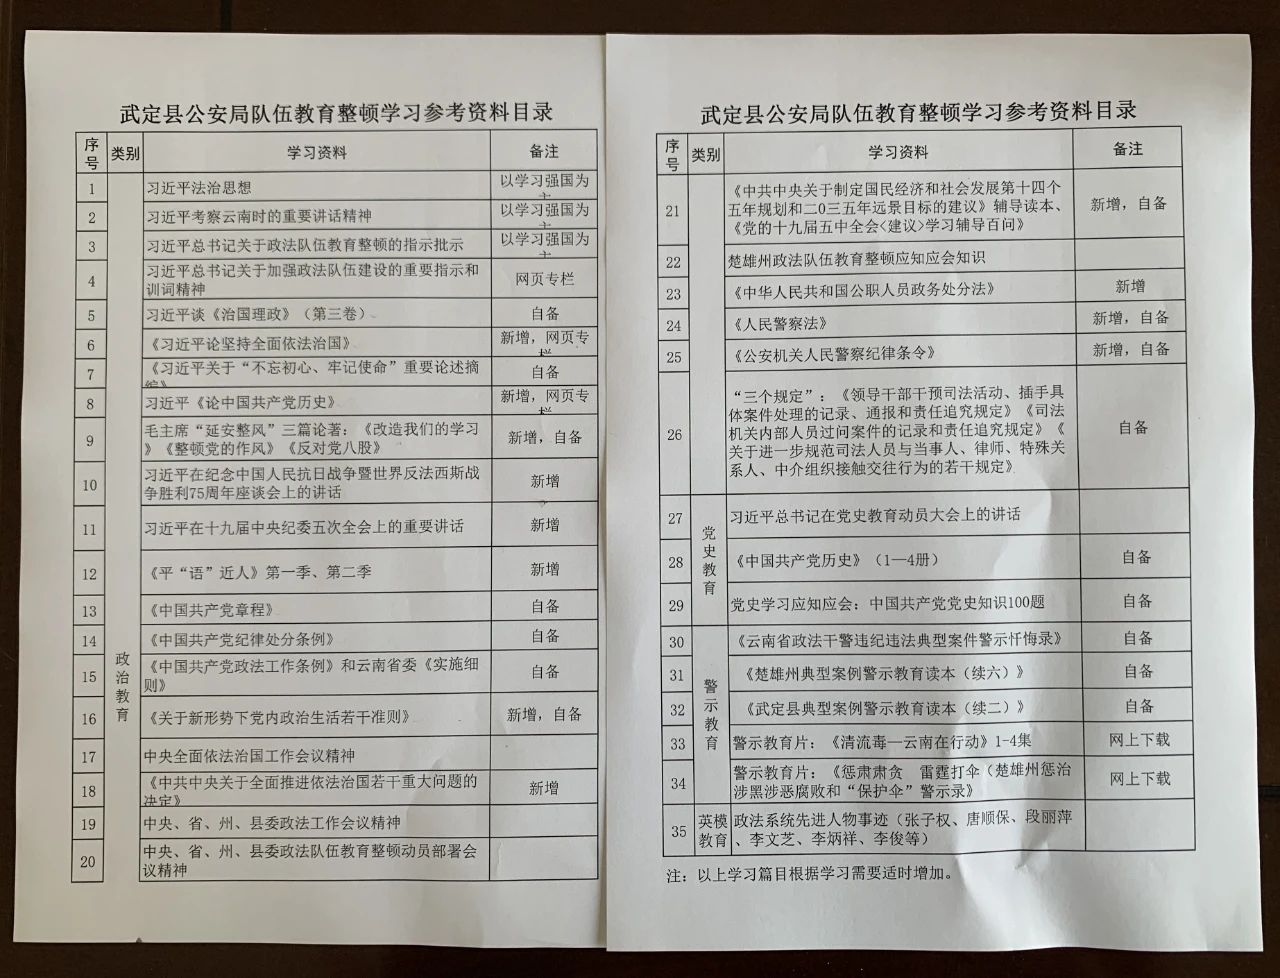 武定县公安局队伍教育整顿学习参考资料目录
序号 类别 学习资料 备注
1 习近平法治思想 以学习强国为主
2 习近平考察云南时的重要讲话精神 以学习强国为主
3 习近平总书记关于政法队伍教育整顿的指示批示 以学习强国为主
4 习近平总书记关于加强政法队伍建设的重要指示和
训词精神 网页专栏
5 习近平谈《治国理政》（第三卷） 自备
6 《习近平论坚持全面依法治国》 新增，网页专
栏
7 《习近平关于“不忘初心、牢记使命”重要论述摘
编》 自备
8 习近平《论中国共产党历史》 新增，网页专
栏
9 毛主席“延安整风”三篇论著：《改造我们的学习
》《整顿党的作风》《反对党八股》 新增，自备
10 习近平在纪念中国人民抗日战争暨世界反法西斯战
争胜利75周年座谈会上的讲话 新增
11 习近平在十九届中央纪委五次全会上的重要讲话 新增
12 《平“语”近人》第一季、第二季 新增
13 《中国共产党章程》 自备
14 《中国共产党纪律处分条例》 自备
政治教育
15 《中国共产党政法工作条例》和云南省委《实施细
则》 自备
16 《关于新形势下党内政治生活若干准则》 新增，自备
17 中央全面依法治国工作会议精神
18 《中共中央关于全面推进依法治国若干重大问题的
决定》 新增
19 中央、省、州、县委政法工作会议精神
20 中央、省、州、县委政法队伍教育整顿动员部署会
议精神
武定县公安局队伍教育整顿学习参考资料目录
序号 类别 学习资料 备注
21 《中共中央关于制定国民经济和社会发展第十四个
五年规划和二0三五年远景目标的建议》辅导读本、
《党的十九届五中全会<建议>学习辅导百问》 新增，自备
22 楚雄州政法队伍教育整顿应知应会知识
23 《中华人民共和国公职人员政务处分法》 新增
24 《人民警察法》 新增，自备
25 《公安机关人民警察纪律条令》 新增，自备
26 “三个规定”：《领导干部干预司法活动、插手具
体案件处理的记录、通报和责任追究规定》《司法
机关内部人员过问案件的记录和责任追究规定》《
关于进一步规范司法人员与当事人、律师、特殊关
系人、中介组织接触交往行为的若干规定》 自备
27 习近平总书记在党史教育动员大会上的讲话
党史教育
28 《中国共产党历史》（1—4册） 自备
29 党史学习应知应会：中国共产党党史知识100题 自备
30 《云南省政法干警违纪违法典型案件警示忏悔录》 自备
31 《楚雄州典型案例警示教育读本（续六）》 自备
警示教育
32 《武定县典型案例警示教育读本（续二）》 自备
33 警示教育片：《清流毒—云南在行动》1-4集 网上下载
34 警示教育片：《惩肃肃贪 雷霆打伞（楚雄州惩治
涉黑涉恶腐败和“保护伞”警示录》 网上下载
35 英模教育 政法系统先进人物事迹（张子权、唐顺保、段丽萍
、李文芝、李炳祥、李俊等）
注：以上学习篇目根据学习需要适时增加。